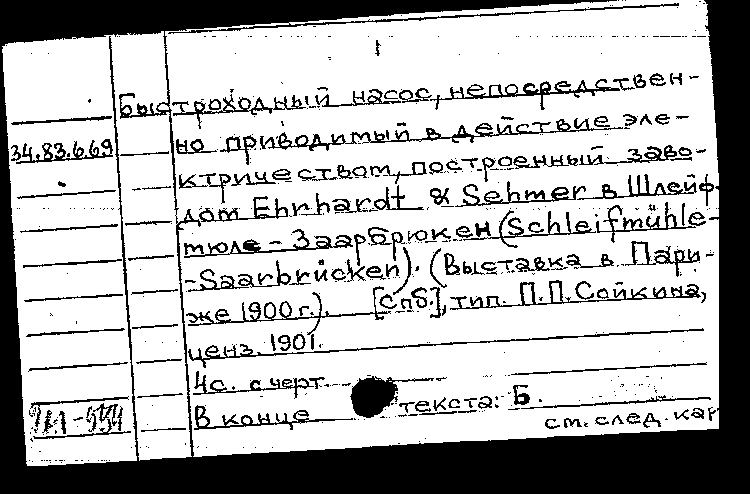 1
Быстроходный насос, непосредствен-
34.83.6.69 но приводимый в действие эле-
ктричеством, построенный заво-
дом Ehrhardt & Sehmer в Шлейф-
мюле-Заарбрюкен (Schleifmühle-
-Saarbrücken). (Выставка в Пари-
же 1900 г.). [Спб.], тип. П.П.Сойкина,
ценз. 1901.
4с. с черт.
В конце текста: Б.
см. след. кар